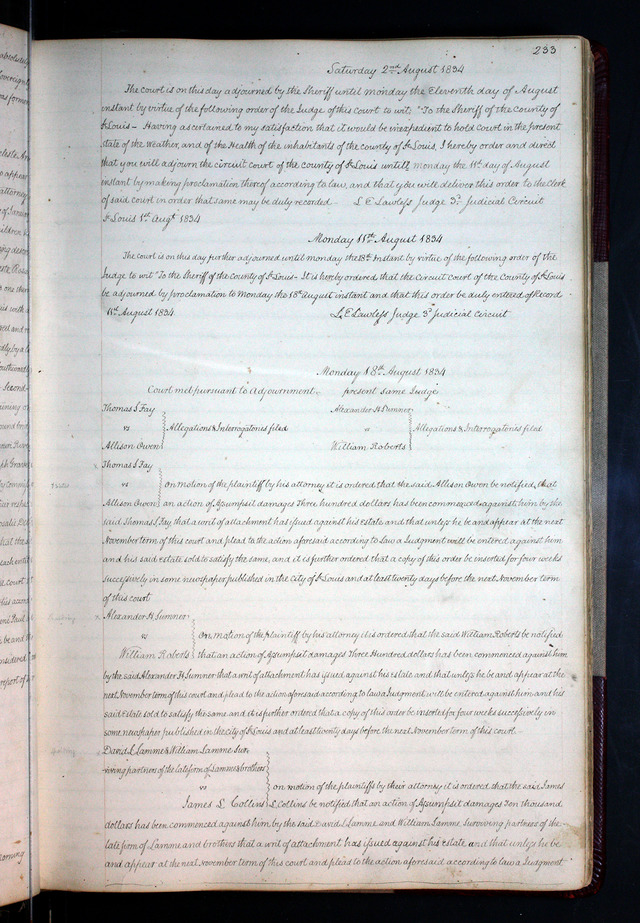 233
Saturday 2nd August 1834
The court is on this day adjourned by the Sheriff until monday the Eleventh day of August
instant by virtue of the following order of the Judge of this Court to wit "To the Sheriff of the County of
St Louis – Having ascertained to my satisfaction that it would be inexpedient to hold Court in the present
State of the Weather, and of the Health of the inhabitants of the county of St Louis, I hereby order and direct
that you will adjourn the circuit court of the county of St Louis untill monday the 11th day of August
instant by making proclamation thereof according to law, and that you will deliver this order to the Clerk
of said court in order that same may be duly recorded L E Lawless Judge 3d Judicial Circuit
St Louis 1st Augt 1834
Monday 11th August 1834
The court is on this day further adjourned until monday the 18th Instant by virtue of the following order of the
Judge to wit "To the Sheriff of the County of St Louis – It is hereby ordered that the Circuit court of the County of St Louis
be adjourned by proclamation to Monday the 18th August instant and that this order be duly entered of Record
11th August 1834 L. E Lawless Judge 3d Judicial Circuit
Monday 18th August 1834
Court met pursuant to Adjournment – present same Judge
Thomas S. Fay Alexander H Sumner
vs Allegations & Interrogatories filed vs Allegations & Interrogatories filed
Allison Owen William Roberts
Thomas S. Fay
vs on motion of the plaintiff by his attorney it is ordered that the said Allison Owen be notified, that
Allison Owen an action of Assumpsit damages Three hundred dollars has been commenced against him by the
said Thomas S. Fay that a writ of attachment has issued against his Estate and that unless he be and appear at the next
November term of this court and plead to the action aforesaid according to Law a Judgment will be entered against him
and his said Estate sold to satisfy the same, and it is further ordered that a copy of this order be inserted for four weeks
successively in some newspaper published in the City of St Louis and at least twenty days before the next November term
of this court
Alexander H Sumner
vs on motion of the plaintiff by his attorney it is ordered that the said William Roberts be notified
William Roberts that an action of Assumpsit damages Three Hundred dollars has been commenced against him
by the said Alexander H. Sumner that a writ of attachment has issued against his estate and that unless he be and appear at the
next November term of this court and plead to the action aforesaid according to law a Judgment will be entered against him and his
said Estate sold to satisfy the same and it is further ordered that a copy of this order be inserted for four weeks successively in
some newspaper published in the City of St Louis and at least twenty days before the next November term of this court –
David L Lamme & William Lamme Sur-
viving partners of the late firm of Lamme & brothers
vs on motion of the plaintiffs by their attorney it is ordered that the said James
James L Collins L Collins be notified that an action of Assumpsit damages Ten thousand
dollars has been commenced against him by the said David L Lamme and William Lamme Surviving partners of the
late firm of Lamme and brothers that a writ of attachment has issued against his Estate and that unless he
be and appear at the next November term of this court and plead to the action aforesaid according to law a Judgment